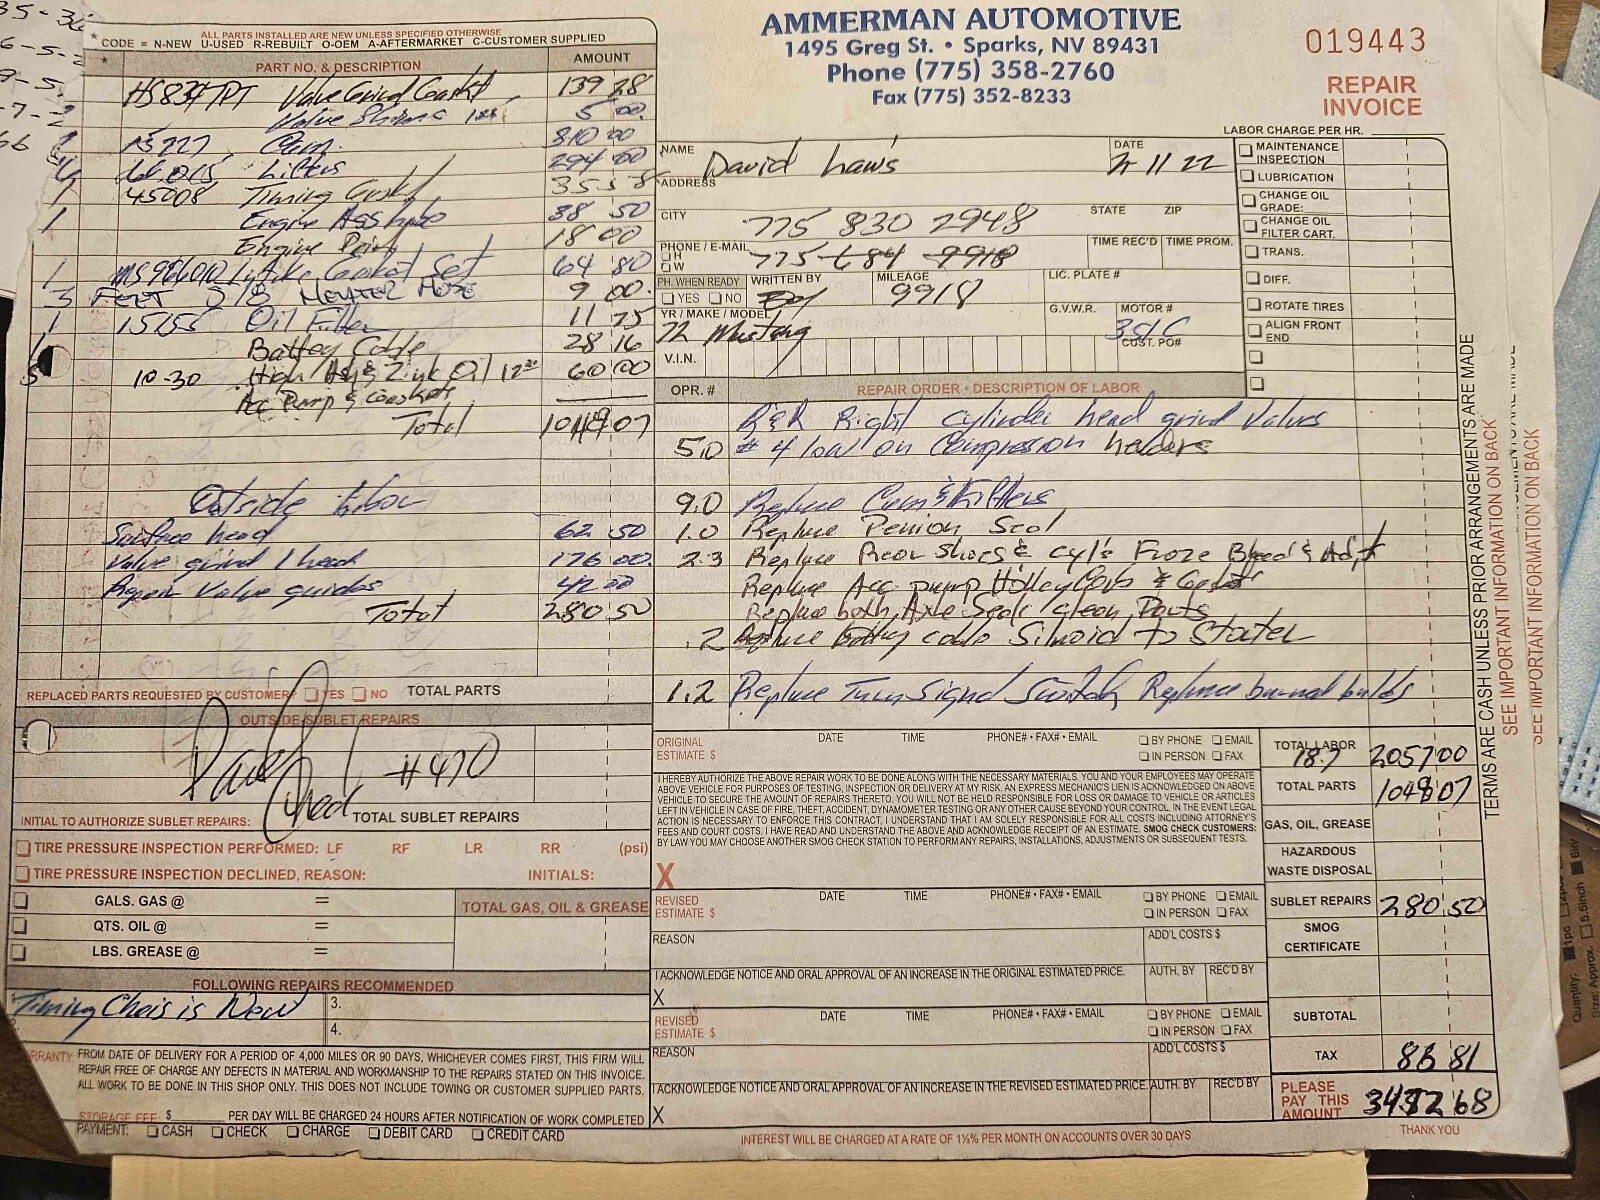 AMMERMAN AUTOMOTIVE
1495 Greg St. • Sparks, NV 89431
Phone (775) 358-2760
Fax (775) 352-8233
019443
REPAIR
INVOICE
LABOR CHARGE PER HR.
ALL PARTS INSTALLED ARE NEW UNLESS SPECIFIED OTHERWISE
* CODE = N-NEW U-USED R-REBUILT O-OEM A-AFTERMARKET C-CUSTOMER SUPPLIED
* PART NO. & DESCRIPTION AMOUNT
Valve Grind Gasket 139 28
Valve Shims 5 00
Cam 00
Lifters 294 00
1 45008 Timing Gasket 35
1 Engine 38 50
Engine 18 00
1 Intake Gasket Set 64 80
3 FEET 5/8 HEATER HOSE 9 00
1 Oil Filter 11 75
Battery Cable 28 16
5 10-30 High Zink Oil 60 00
Acc Pump &
Total
Outside Labor
Surface head 62 50
Valve grind 1 head 176 00
Valve guides 42 00
Total 280 50
REPLACED PARTS REQUESTED BY CUSTOMER? YES NO TOTAL PARTS
OUTSIDE SUBLET REPAIRS
Paid
#470
INITIAL TO AUTHORIZE SUBLET REPAIRS: TOTAL SUBLET REPAIRS
TIRE PRESSURE INSPECTION PERFORMED: LF RF LR RR (psi)
TIRE PRESSURE INSPECTION DECLINED, REASON: INITIALS:
GALS. GAS @ =
TOTAL GAS, OIL & GREASE
QTS. OIL @ =
LBS. GREASE @ =
FOLLOWING REPAIRS RECOMMENDED
Timing is New 3.
4.
FROM DATE OF DELIVERY FOR A PERIOD OF 4,000 MILES OR 90 DAYS, WHICHEVER COMES FIRST, THIS FIRM WILL
REPAIR FREE OF CHARGE ANY DEFECTS IN MATERIAL AND WORKMANSHIP TO THE REPAIRS STATED ON THIS INVOICE.
ALL WORK TO BE DONE IN THIS SHOP ONLY. THIS DOES NOT INCLUDE TOWING OR CUSTOMER SUPPLIED PARTS.
STORAGE FEE: $ PER DAY WILL BE CHARGED 24 HOURS AFTER NOTIFICATION OF WORK COMPLETED
PAYMENT: CASH CHECK CHARGE DEBIT CARD CREDIT CARD
NAME David Laws DATE 2 11 22
ADDRESS
CITY 775 830 2948 STATE ZIP
PHONE / E-MAIL H W 775 684 9918 TIME REC'D TIME PROM.
PH. WHEN READY YES NO WRITTEN BY MILEAGE 9918 LIC. PLATE #
YR / MAKE / MODEL 72 Mustang G.V.W.R. MOTOR # 351C
CUST. PO#
V.I.N.
MAINTENANCE
INSPECTION
LUBRICATION
CHANGE OIL
GRADE:
CHANGE OIL
FILTER CART.
TRANS.
DIFF.
ROTATE TIRES
ALIGN FRONT
END
OPR. # REPAIR ORDER • DESCRIPTION OF LABOR
R&R Right cylinder head grind valves
5.0 #4 low on Compression
9.0 Replace Cam & Lifters
1.0 Replace Penion Seal
2.3 Replace Rear Shoes & Cyl's Froze Bleed & Adj
Replace Acc pump Holley Carb & Gaskets
Replace both Axle Seals clean Parts
.2 Replace battery cable to Starter
1.2 Replace Turn Signal Switch Replace burned bulbs
ORIGINAL
ESTIMATE $ DATE TIME PHONE# • FAX# • EMAIL BY PHONE EMAIL
IN PERSON FAX
I HEREBY AUTHORIZE THE ABOVE REPAIR WORK TO BE DONE ALONG WITH THE NECESSARY MATERIALS. YOU AND YOUR EMPLOYEES MAY OPERATE
ABOVE VEHICLE FOR PURPOSES OF TESTING, INSPECTION OR DELIVERY AT MY RISK. AN EXPRESS MECHANIC'S LIEN IS ACKNOWLEDGED ON ABOVE
VEHICLE TO SECURE THE AMOUNT OF REPAIRS THERETO. YOU WILL NOT BE HELD RESPONSIBLE FOR LOSS OR DAMAGE TO VEHICLE OR ARTICLES
LEFT IN VEHICLE IN CASE OF FIRE, THEFT, ACCIDENT, DYNAMOMETER TESTING OR ANY OTHER CAUSE BEYOND YOUR CONTROL. IN THE EVENT LEGAL
ACTION IS NECESSARY TO ENFORCE THIS CONTRACT, I UNDERSTAND THAT I AM SOLELY RESPONSIBLE FOR ALL COSTS INCLUDING ATTORNEY'S
FEES AND COURT COSTS. I HAVE READ AND UNDERSTAND THE ABOVE AND ACKNOWLEDGE RECEIPT OF AN ESTIMATE. SMOG CHECK CUSTOMERS:
BY LAW YOU MAY CHOOSE ANOTHER SMOG CHECK STATION TO PERFORM ANY REPAIRS, INSTALLATIONS, ADJUSTMENTS OR SUBSEQUENT TESTS.
X
REVISED
ESTIMATE $ DATE TIME PHONE# • FAX# • EMAIL BY PHONE EMAIL
IN PERSON FAX
REASON ADD'L COSTS $
I ACKNOWLEDGE NOTICE AND ORAL APPROVAL OF AN INCREASE IN THE ORIGINAL ESTIMATED PRICE. AUTH. BY REC'D BY
X
REVISED
ESTIMATE $ DATE TIME PHONE# • FAX# • EMAIL BY PHONE EMAIL
IN PERSON FAX
REASON ADD'L COSTS $
I ACKNOWLEDGE NOTICE AND ORAL APPROVAL OF AN INCREASE IN THE REVISED ESTIMATED PRICE. AUTH. BY REC'D BY
X
INTEREST WILL BE CHARGED AT A RATE OF 1½% PER MONTH ON ACCOUNTS OVER 30 DAYS
TOTAL LABOR 18.7 2057 00
TOTAL PARTS 1048 07
GAS, OIL, GREASE
HAZARDOUS
WASTE DISPOSAL
SUBLET REPAIRS 280.50
SMOG
CERTIFICATE
SUBTOTAL
TAX 86 81
PLEASE
PAY THIS
AMOUNT 68
THANK YOU
TERMS ARE CASH UNLESS PRIOR ARRANGEMENTS ARE MADE
SEE IMPORTANT INFORMATION ON BACK
SEE IMPORTANT INFORMATION ON BACK